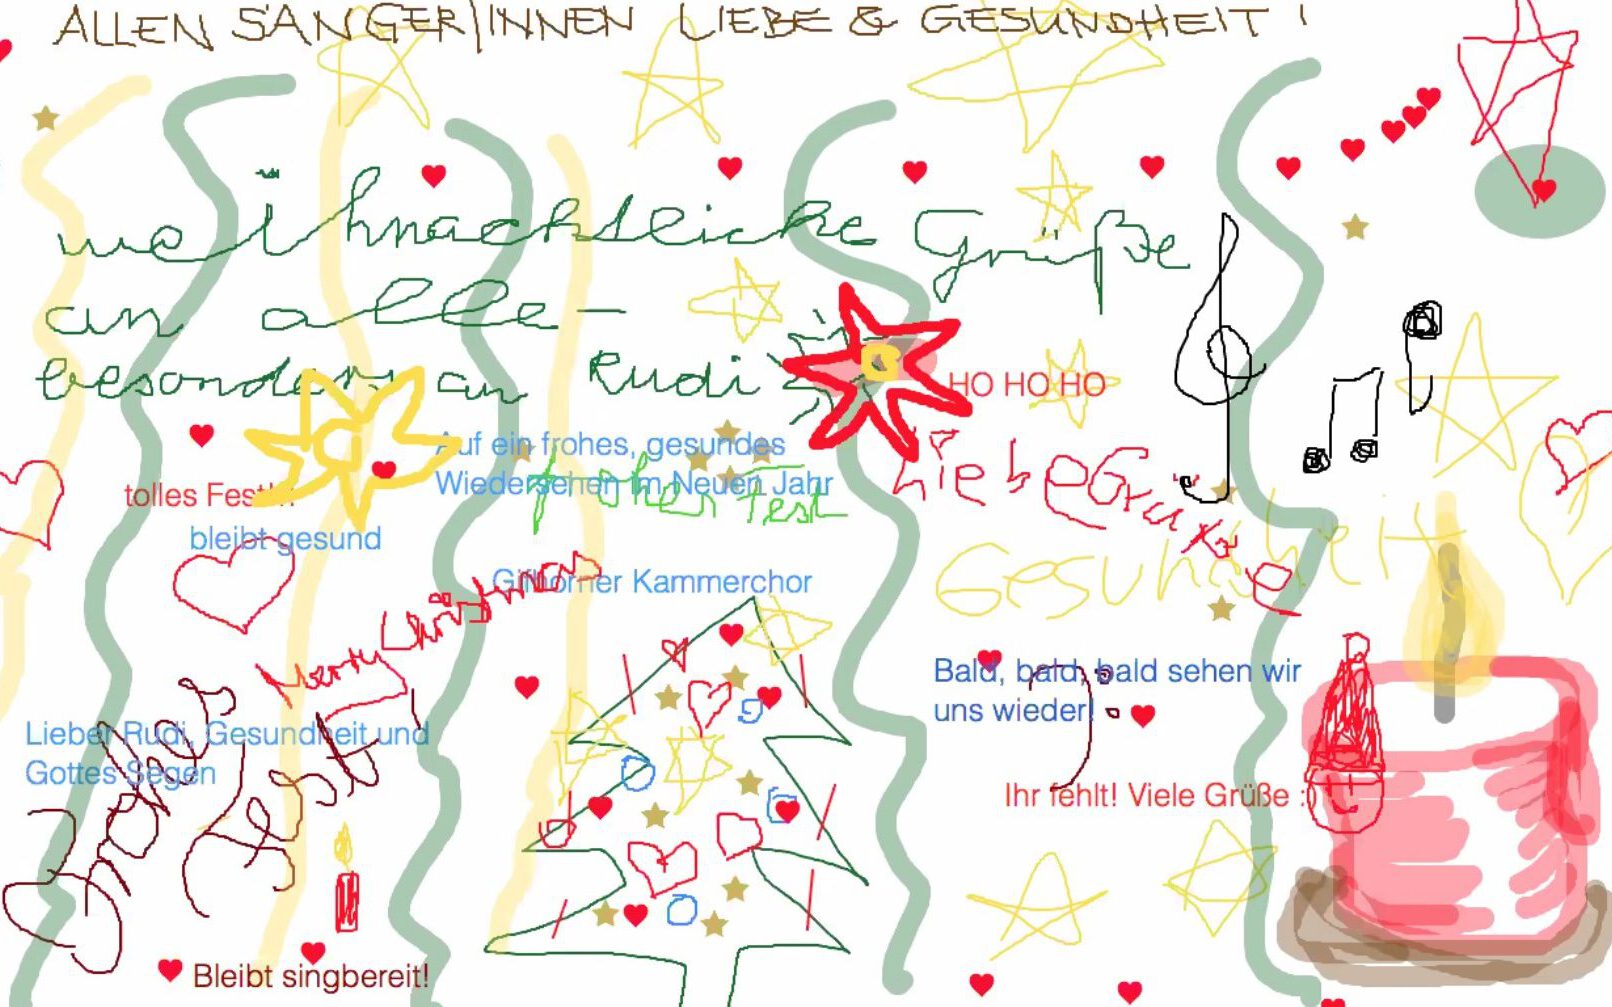 ALLEN SÄNGER/INNEN LIEBE & GESUNDHEIT !
weihnachtliche Grüße
an alle -
besonders an Rudi
HO HO HO
Auf ein frohes, gesundes
Wiedersehen im Neuen Jahr
frohes Fest
Liebe Grüße
tolles Fest!
bleibt gesund
Gesundheit
Gifhorner Kammerchor
Merry Christmas
Bald, bald, bald sehen wir
uns wieder!
Lieber Rudi, Gesundheit und
Gottes Segen
Frohes
Fest
Ihr fehlt! Viele Grüße :)
Bleibt singbereit!